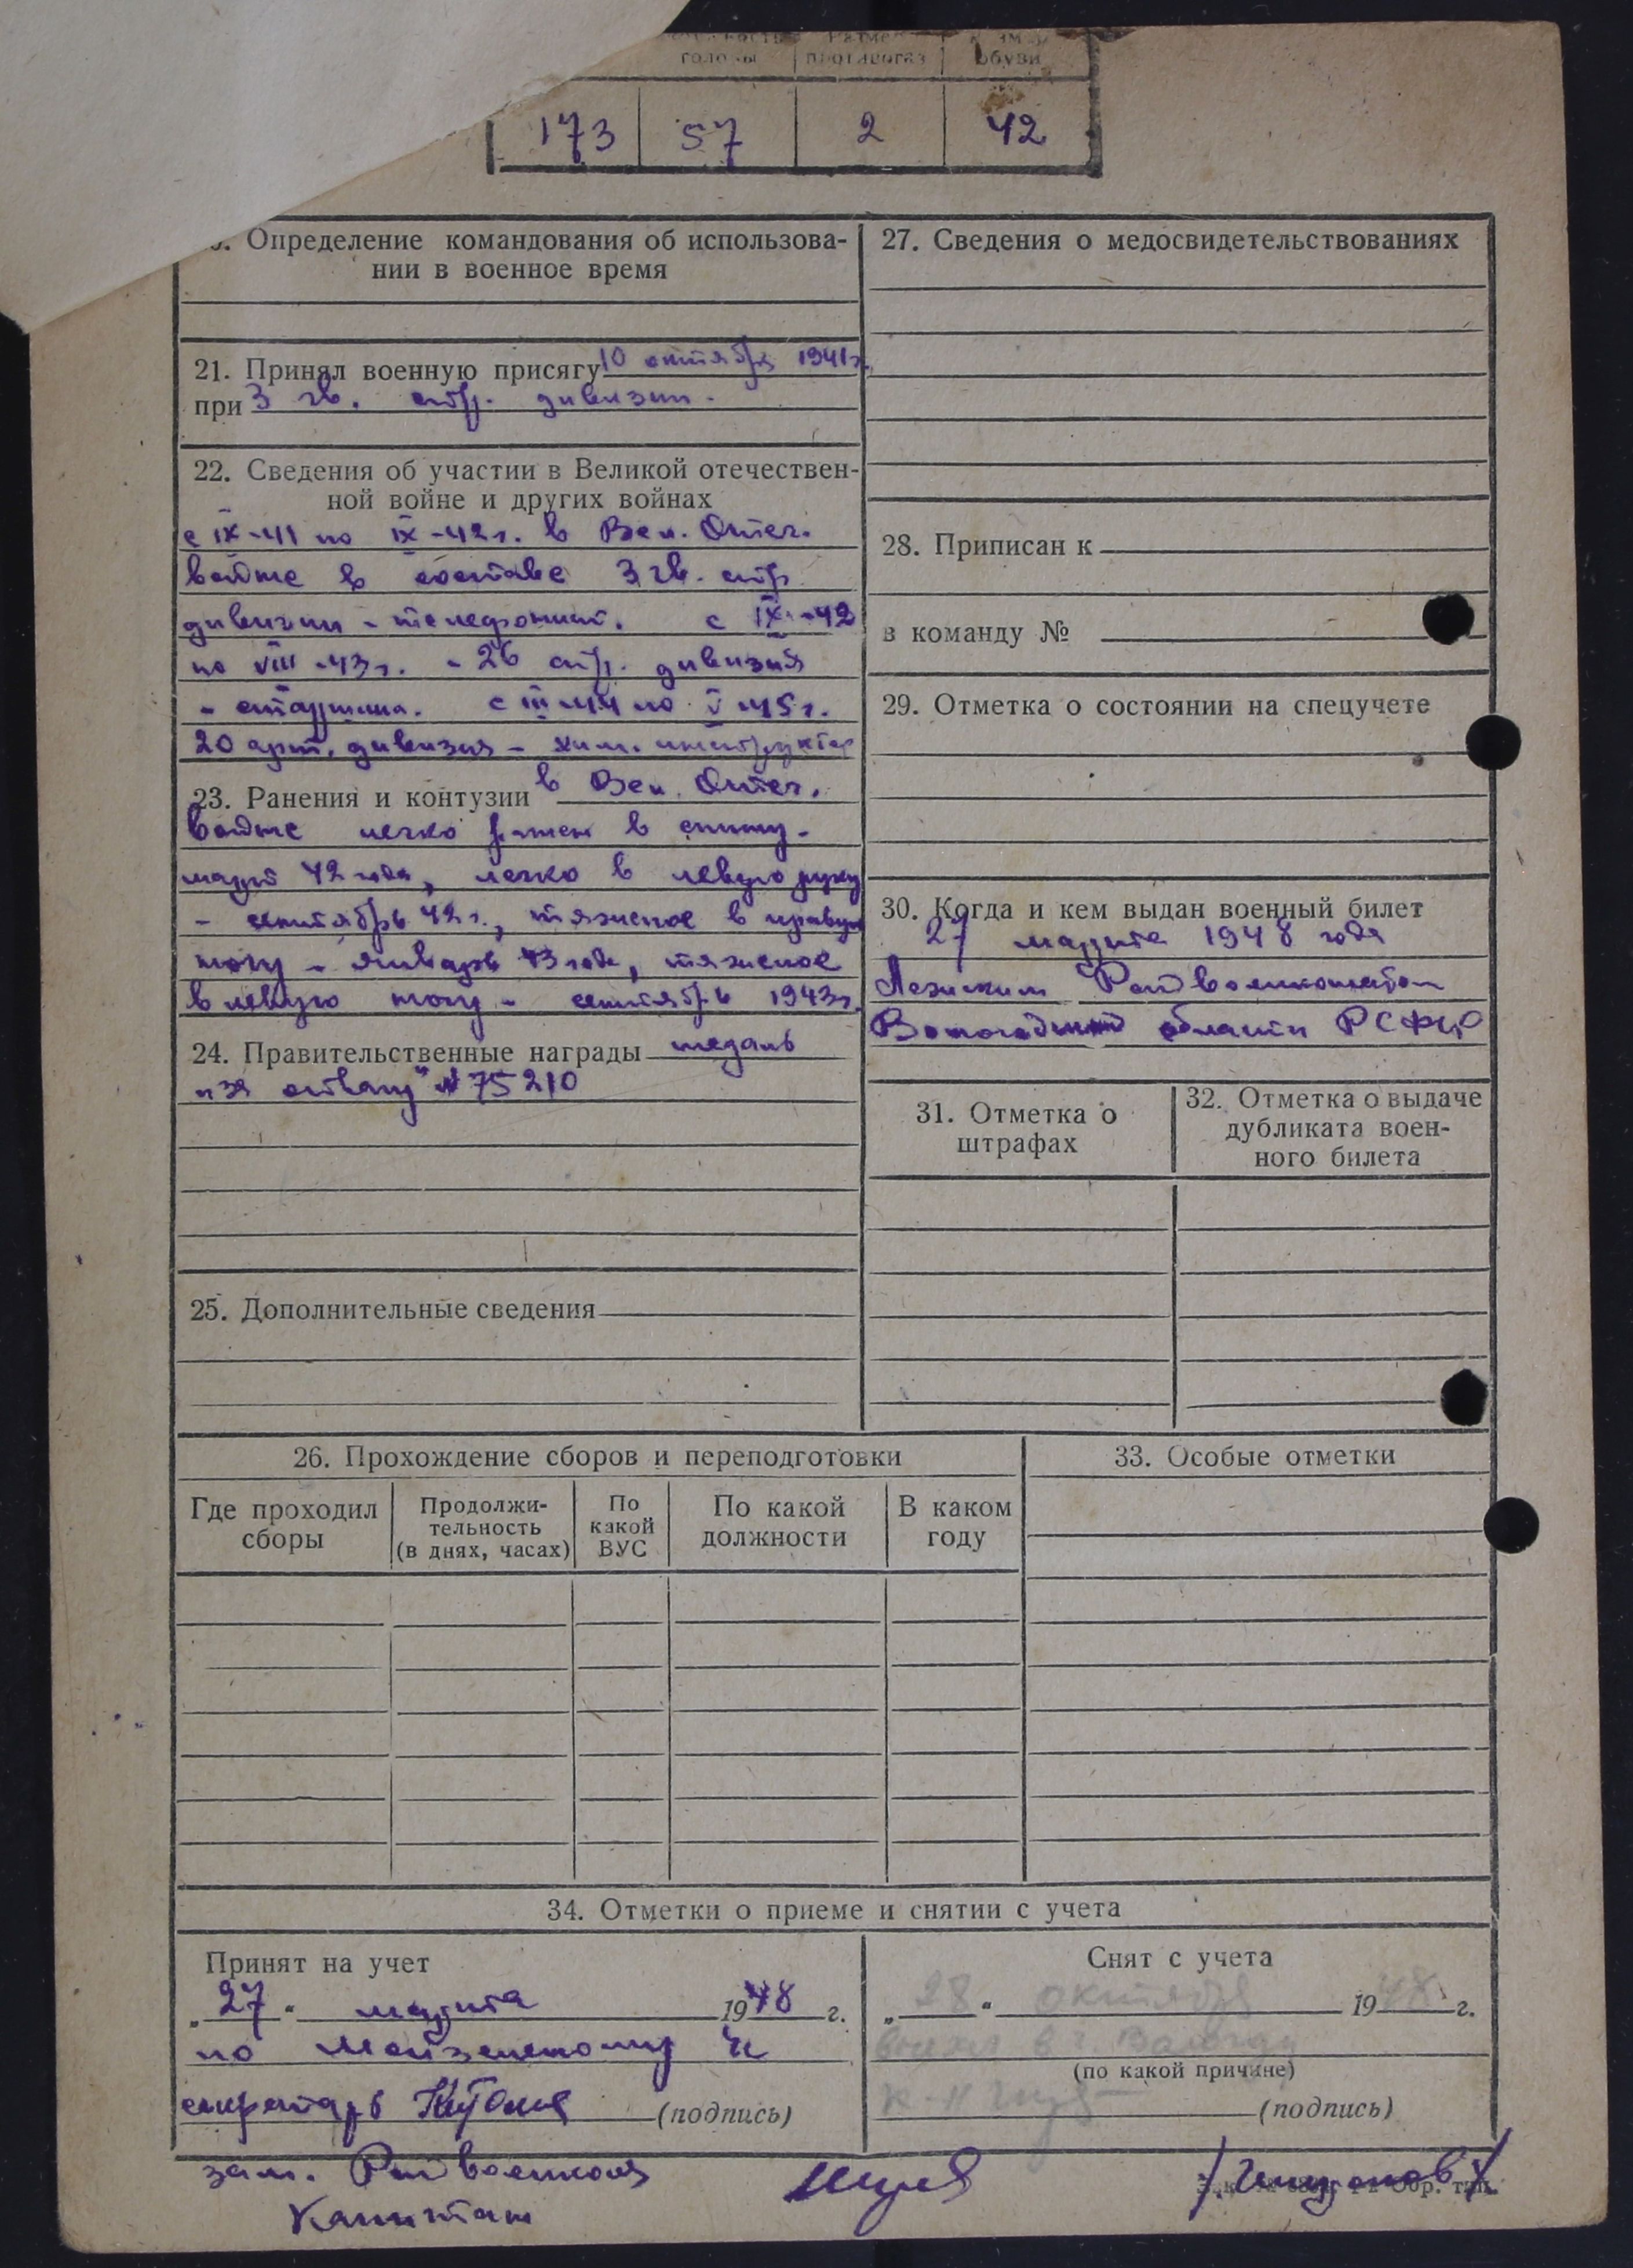 головы противогаз обуви
173 57 2 42
Определение командования об использова-
нии в военное время
21. Принял военную присягу 10 октября 1941г.
при 3 гв. стр. дивизии.
22. Сведения об участии в Великой отечествен-
ной войне и других войнах
с IX-41 по IX-42г. в Вел. Отеч.
войне в составе 3 гв. стр.
дивизии - телефонист. с IX-42
по VIII-43г. - 26 стр. дивизия
- старшина. с III-44 по V-45г.
20 арт. дивизия - хим. инструктор
23. Ранения и контузии в Вел. Отеч.
войне легко ранен в спину -
март 42 года, легко в левую руку
- сентябрь 42г., тяжелое в правую
ногу - январь 43 года, тяжелое
в левую ногу - сентябрь 1943г.
24. Правительственные награды медаль
"за отвагу" № 75210
25. Дополнительные сведения
27. Сведения о медосвидетельствованиях
28. Приписан к
в команду №
29. Отметка о состоянии на спецучете
30. Когда и кем выдан военный билет
27 марта 1948 года
Лежским Райвоенкоматом
Вологодской области РСФСР
31. Отметка о
штрафах
32. Отметка о выдаче
дубликата воен-
ного билета
26. Прохождение сборов и переподготовки
Где проходил
сборы
Продолжи-
тельность
(в днях, часах)
По
какой
ВУС
По какой
должности
В каком
году
33. Особые отметки
34. Отметки о приеме и снятии с учета
Принят на учет
„27" марта 1948 г.
по
секретарь
(подпись)
Снят с учета
„28" октября 1948 г.
выехал в г. Вологду
(по какой причине)
(подпись)
зам. Райвоенкома
Капитан